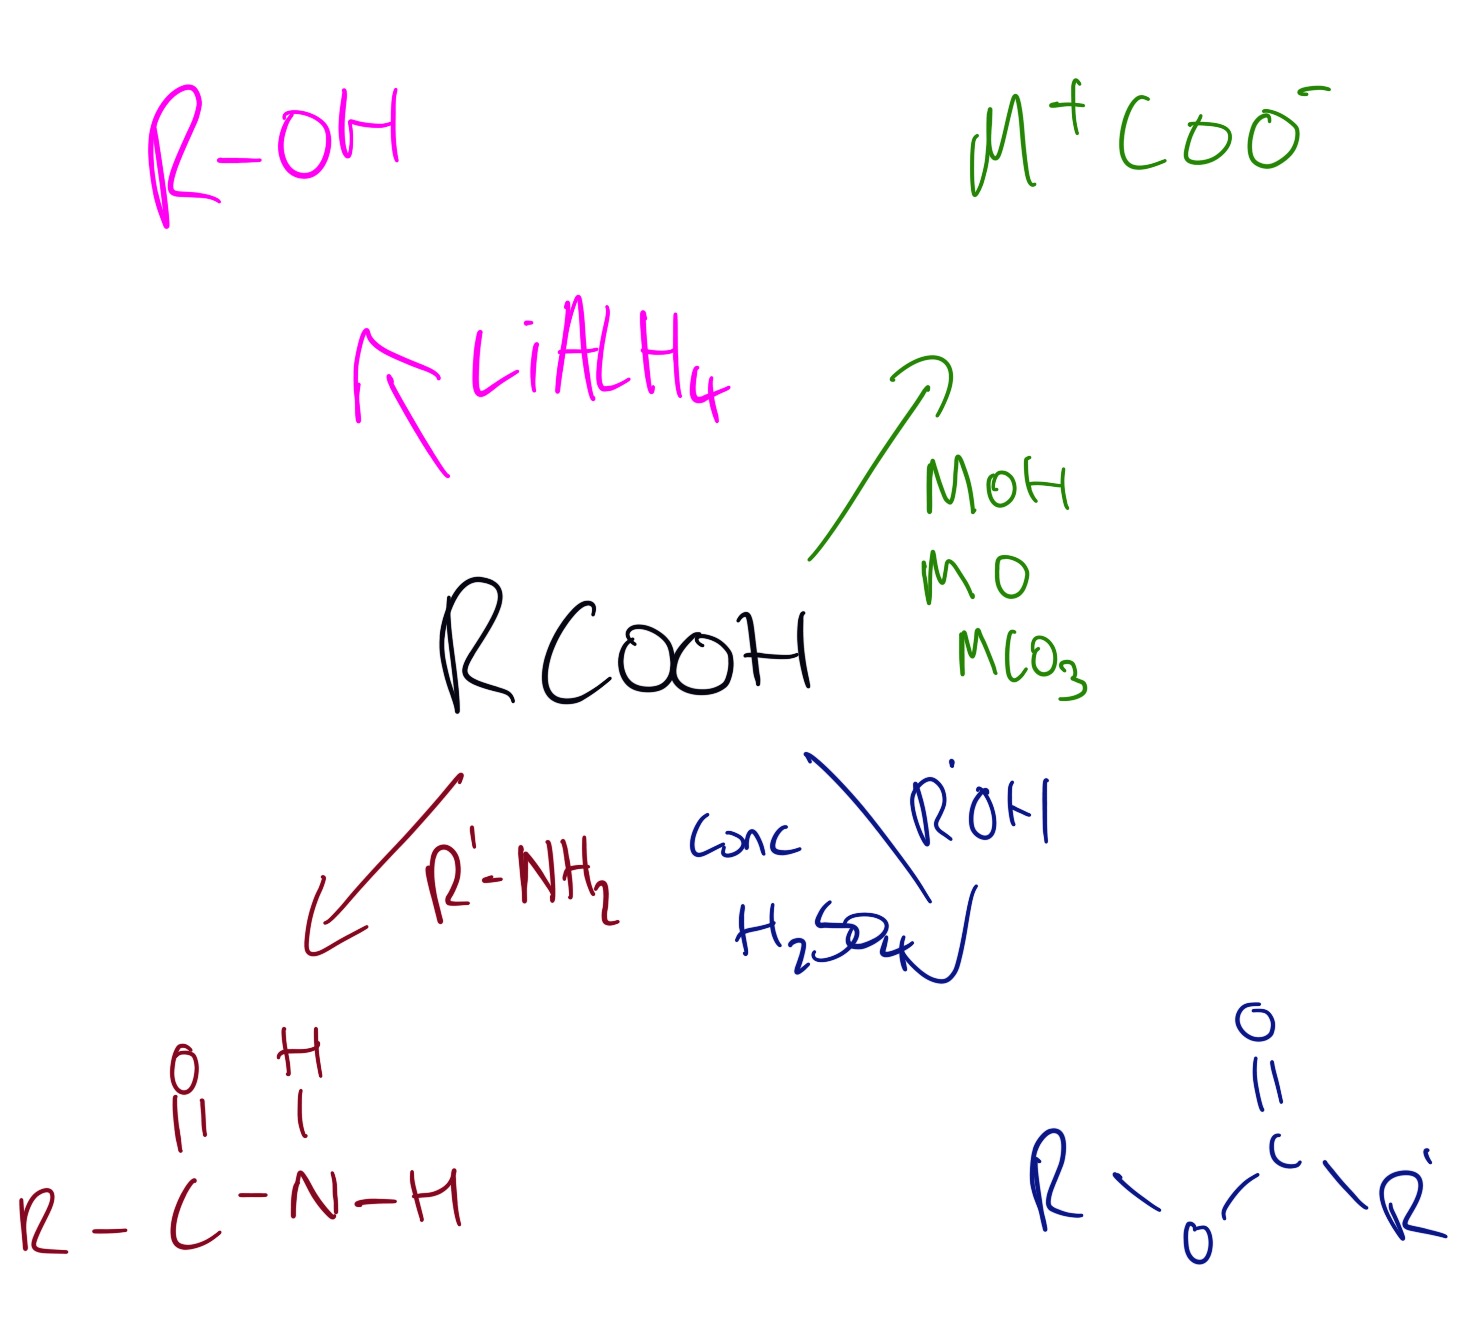 R-OH
M⁺COO⁻
LiAlH₄
MOH
MO
MCO₃
RCOOH
R'OH
Conc
H₂SO₄
R'-NH₂
O
H
R-C-N-H
O
C
R
R'
O